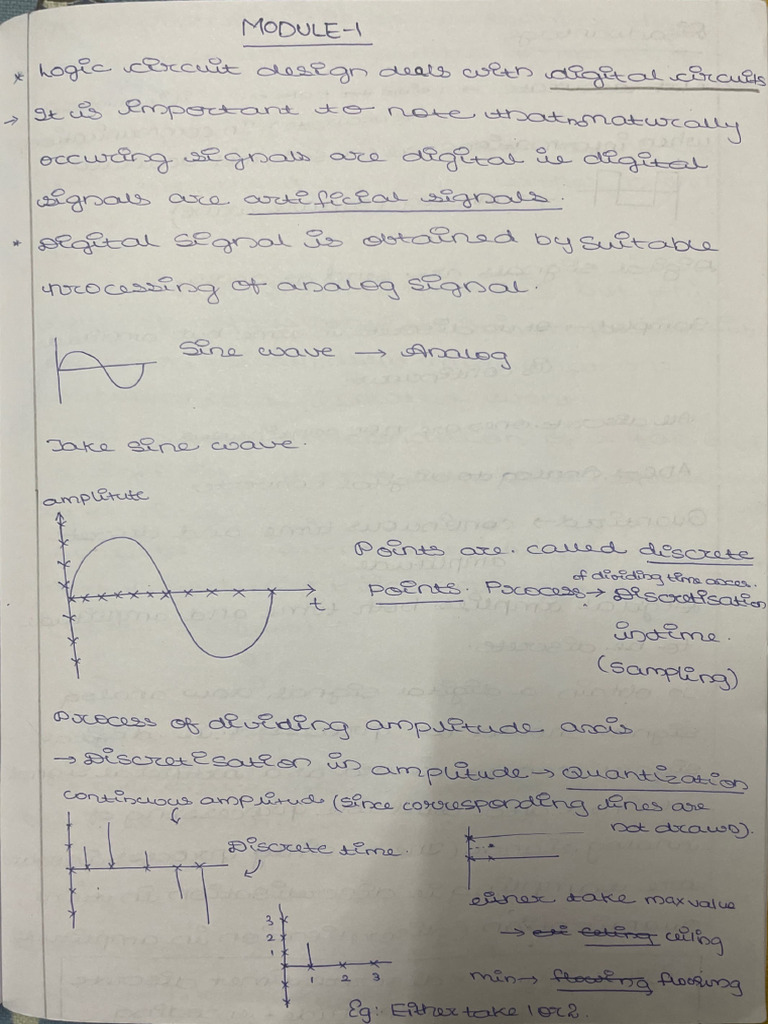 MODULE-1
* Logic circuit design deals with digital circuits
→ It is important to note that no naturally
occuring signals are digital ie digital
signals are artificial signals.
* Digital signal is obtained by suitable
processing of analog signal.
Sine wave → Analog
Take sine wave.
amplitute
t
Points are called discrete
points. Process of dividing time axes. → Discretisation
in time.
(Sampling)
Process of dividing amplitude axis
→ Discretisation in amplitude → Quantization
continuous amplitud (since corresponding lines are
not drawn).
Discrete time.
either take max value
→ ceiling
min → flooring
3
2
1
1 2 3
Eg: Either take 1 or 2.